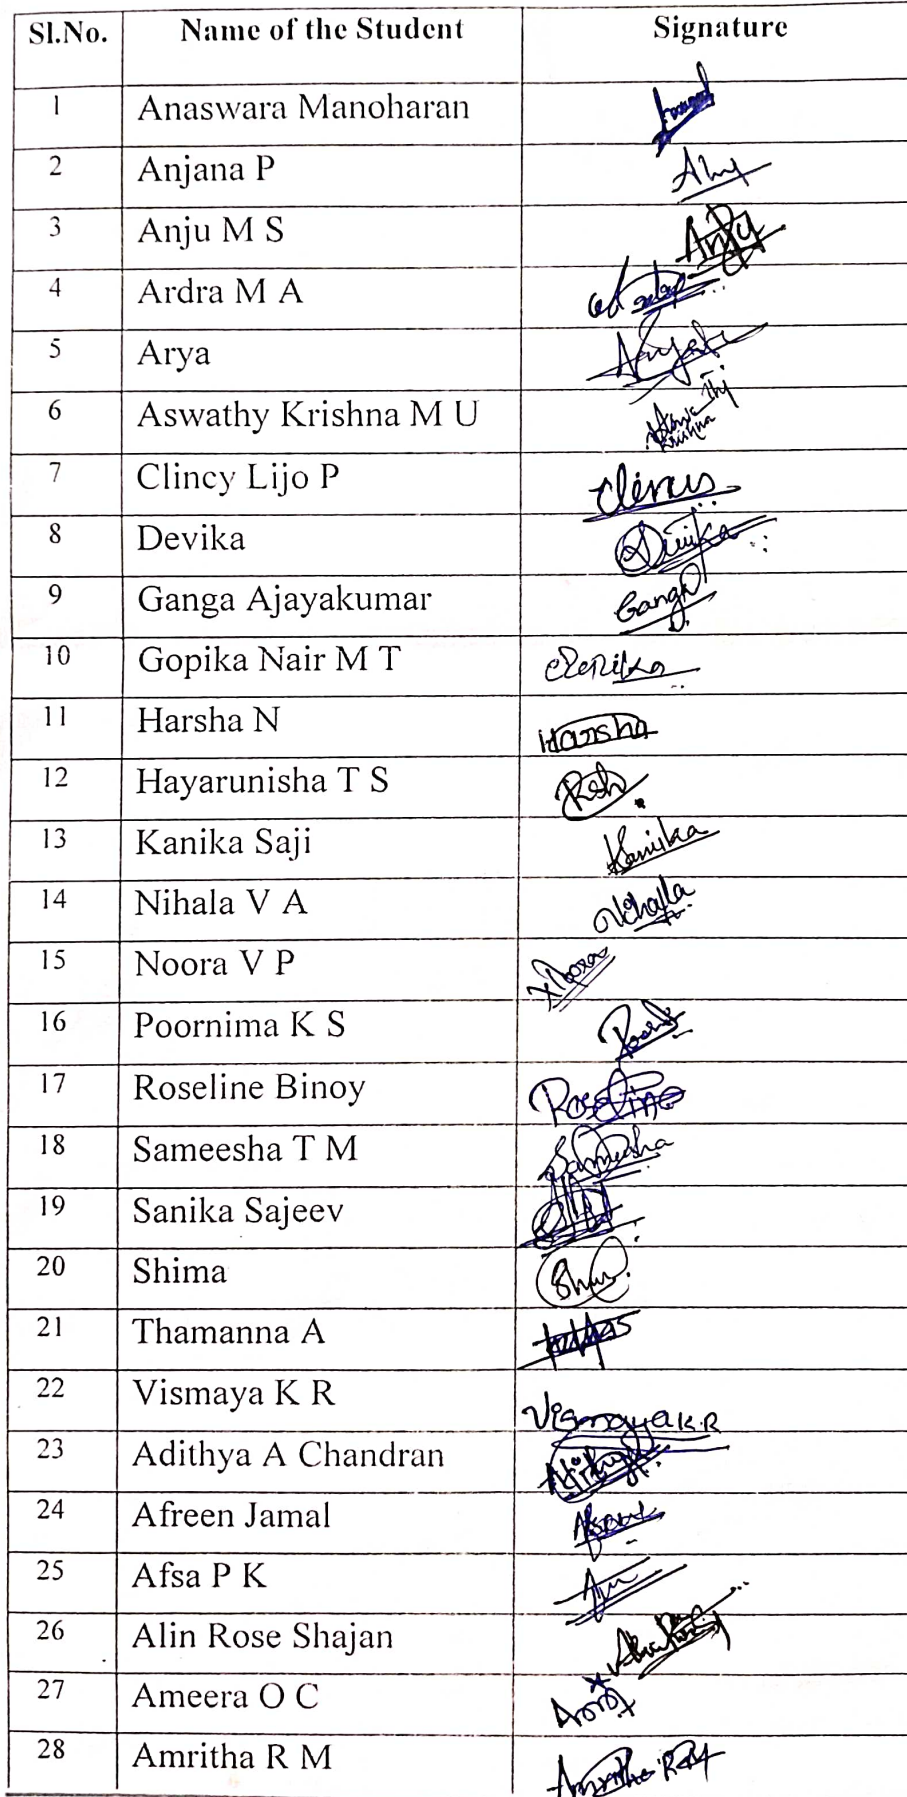 Sl.No. Name of the Student Signature
1 Anaswara Manoharan
2 Anjana P
3 Anju M S Anju
4 Ardra M A
5 Arya
6 Aswathy Krishna M U Aswathy Krishna
7 Clincy Lijo P
8 Devika Devika
9 Ganga Ajayakumar Ganga
10 Gopika Nair M T
11 Harsha N Harsha
12 Hayarunisha T S
13 Kanika Saji Kanika
14 Nihala V A Nihala
15 Noora V P Noora
16 Poornima K S
17 Roseline Binoy Roseline
18 Sameesha T M Sameesha
19 Sanika Sajeev
20 Shima
21 Thamanna A
22 Vismaya K R Vismaya K.R
23 Adithya A Chandran
24 Afreen Jamal
25 Afsa P K
26 Alin Rose Shajan
27 Ameera O C
28 Amritha R M Amritha R M